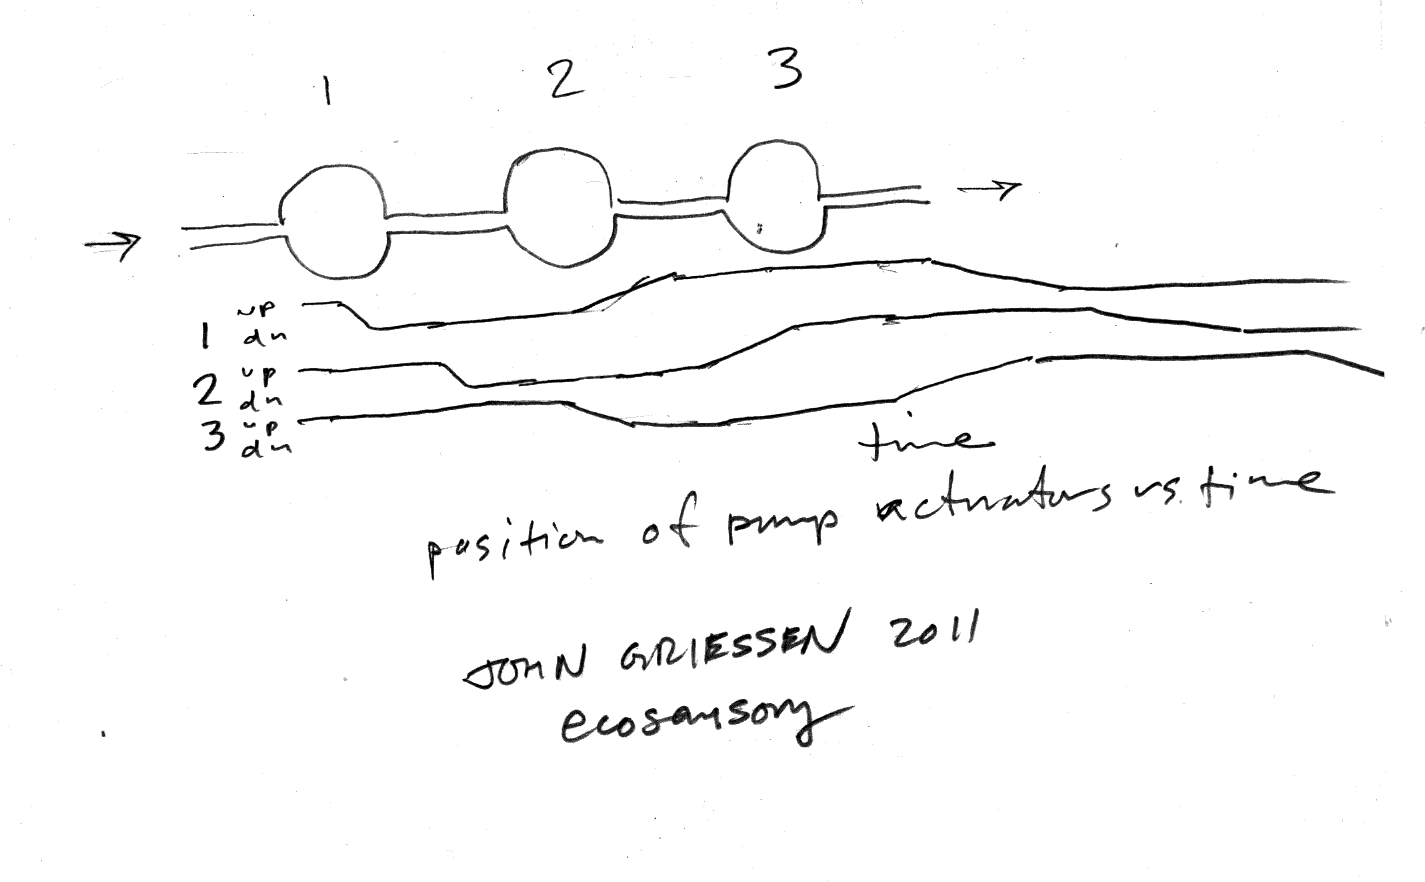 1 2 3
1 up
dn
2 up
dn
3 up
dn
time
position of pump actuators vs. time
JOHN GRIESSEN 2011
ecosensory